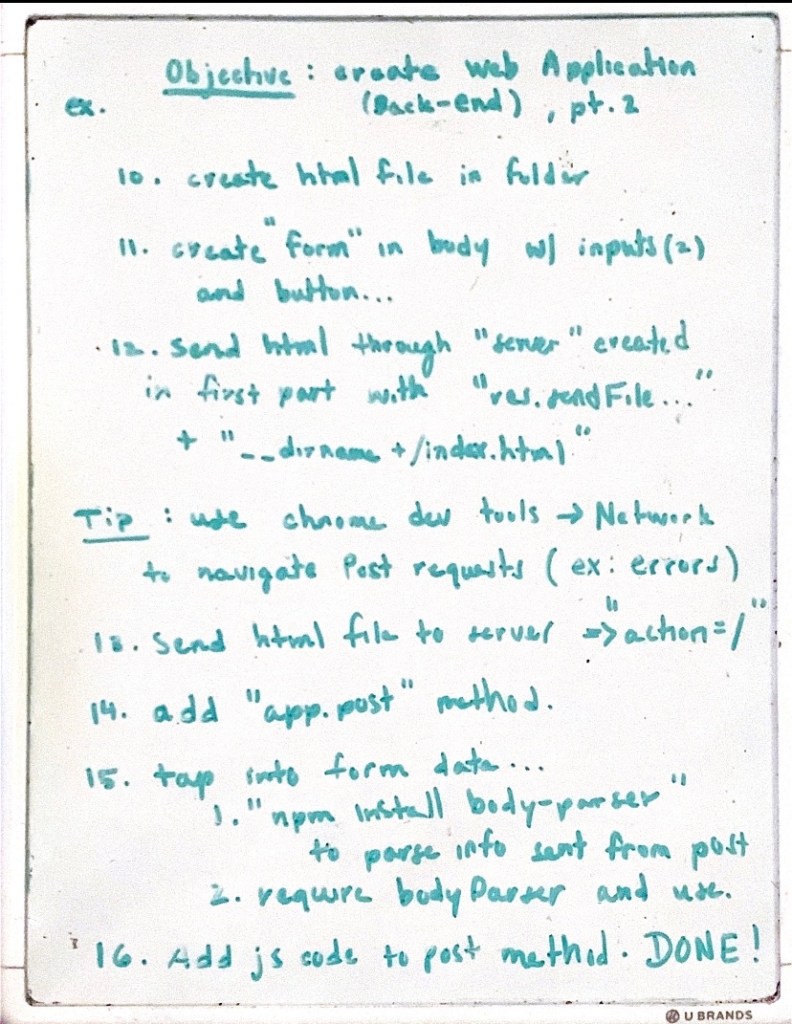 Objective : create Web Application
ex. (Back-end) , pt. 2
10. create html file in folder
11. create "form" in body w/ inputs (2)
and button...
12. Send html through "server" created
in first part with "res.sendFile..."
+ "__dirname + /index.html"
Tip : use chrome dev tools → Network
to navigate Post requests ( ex: errors )
13. Send html file to server => "action=/"
14. add "app.post" method.
15. tap into form data...
1. "npm install body-parser"
to parse info sent from post
2. require bodyParser and use.
16. Add js code to post method. DONE!
U BRANDS